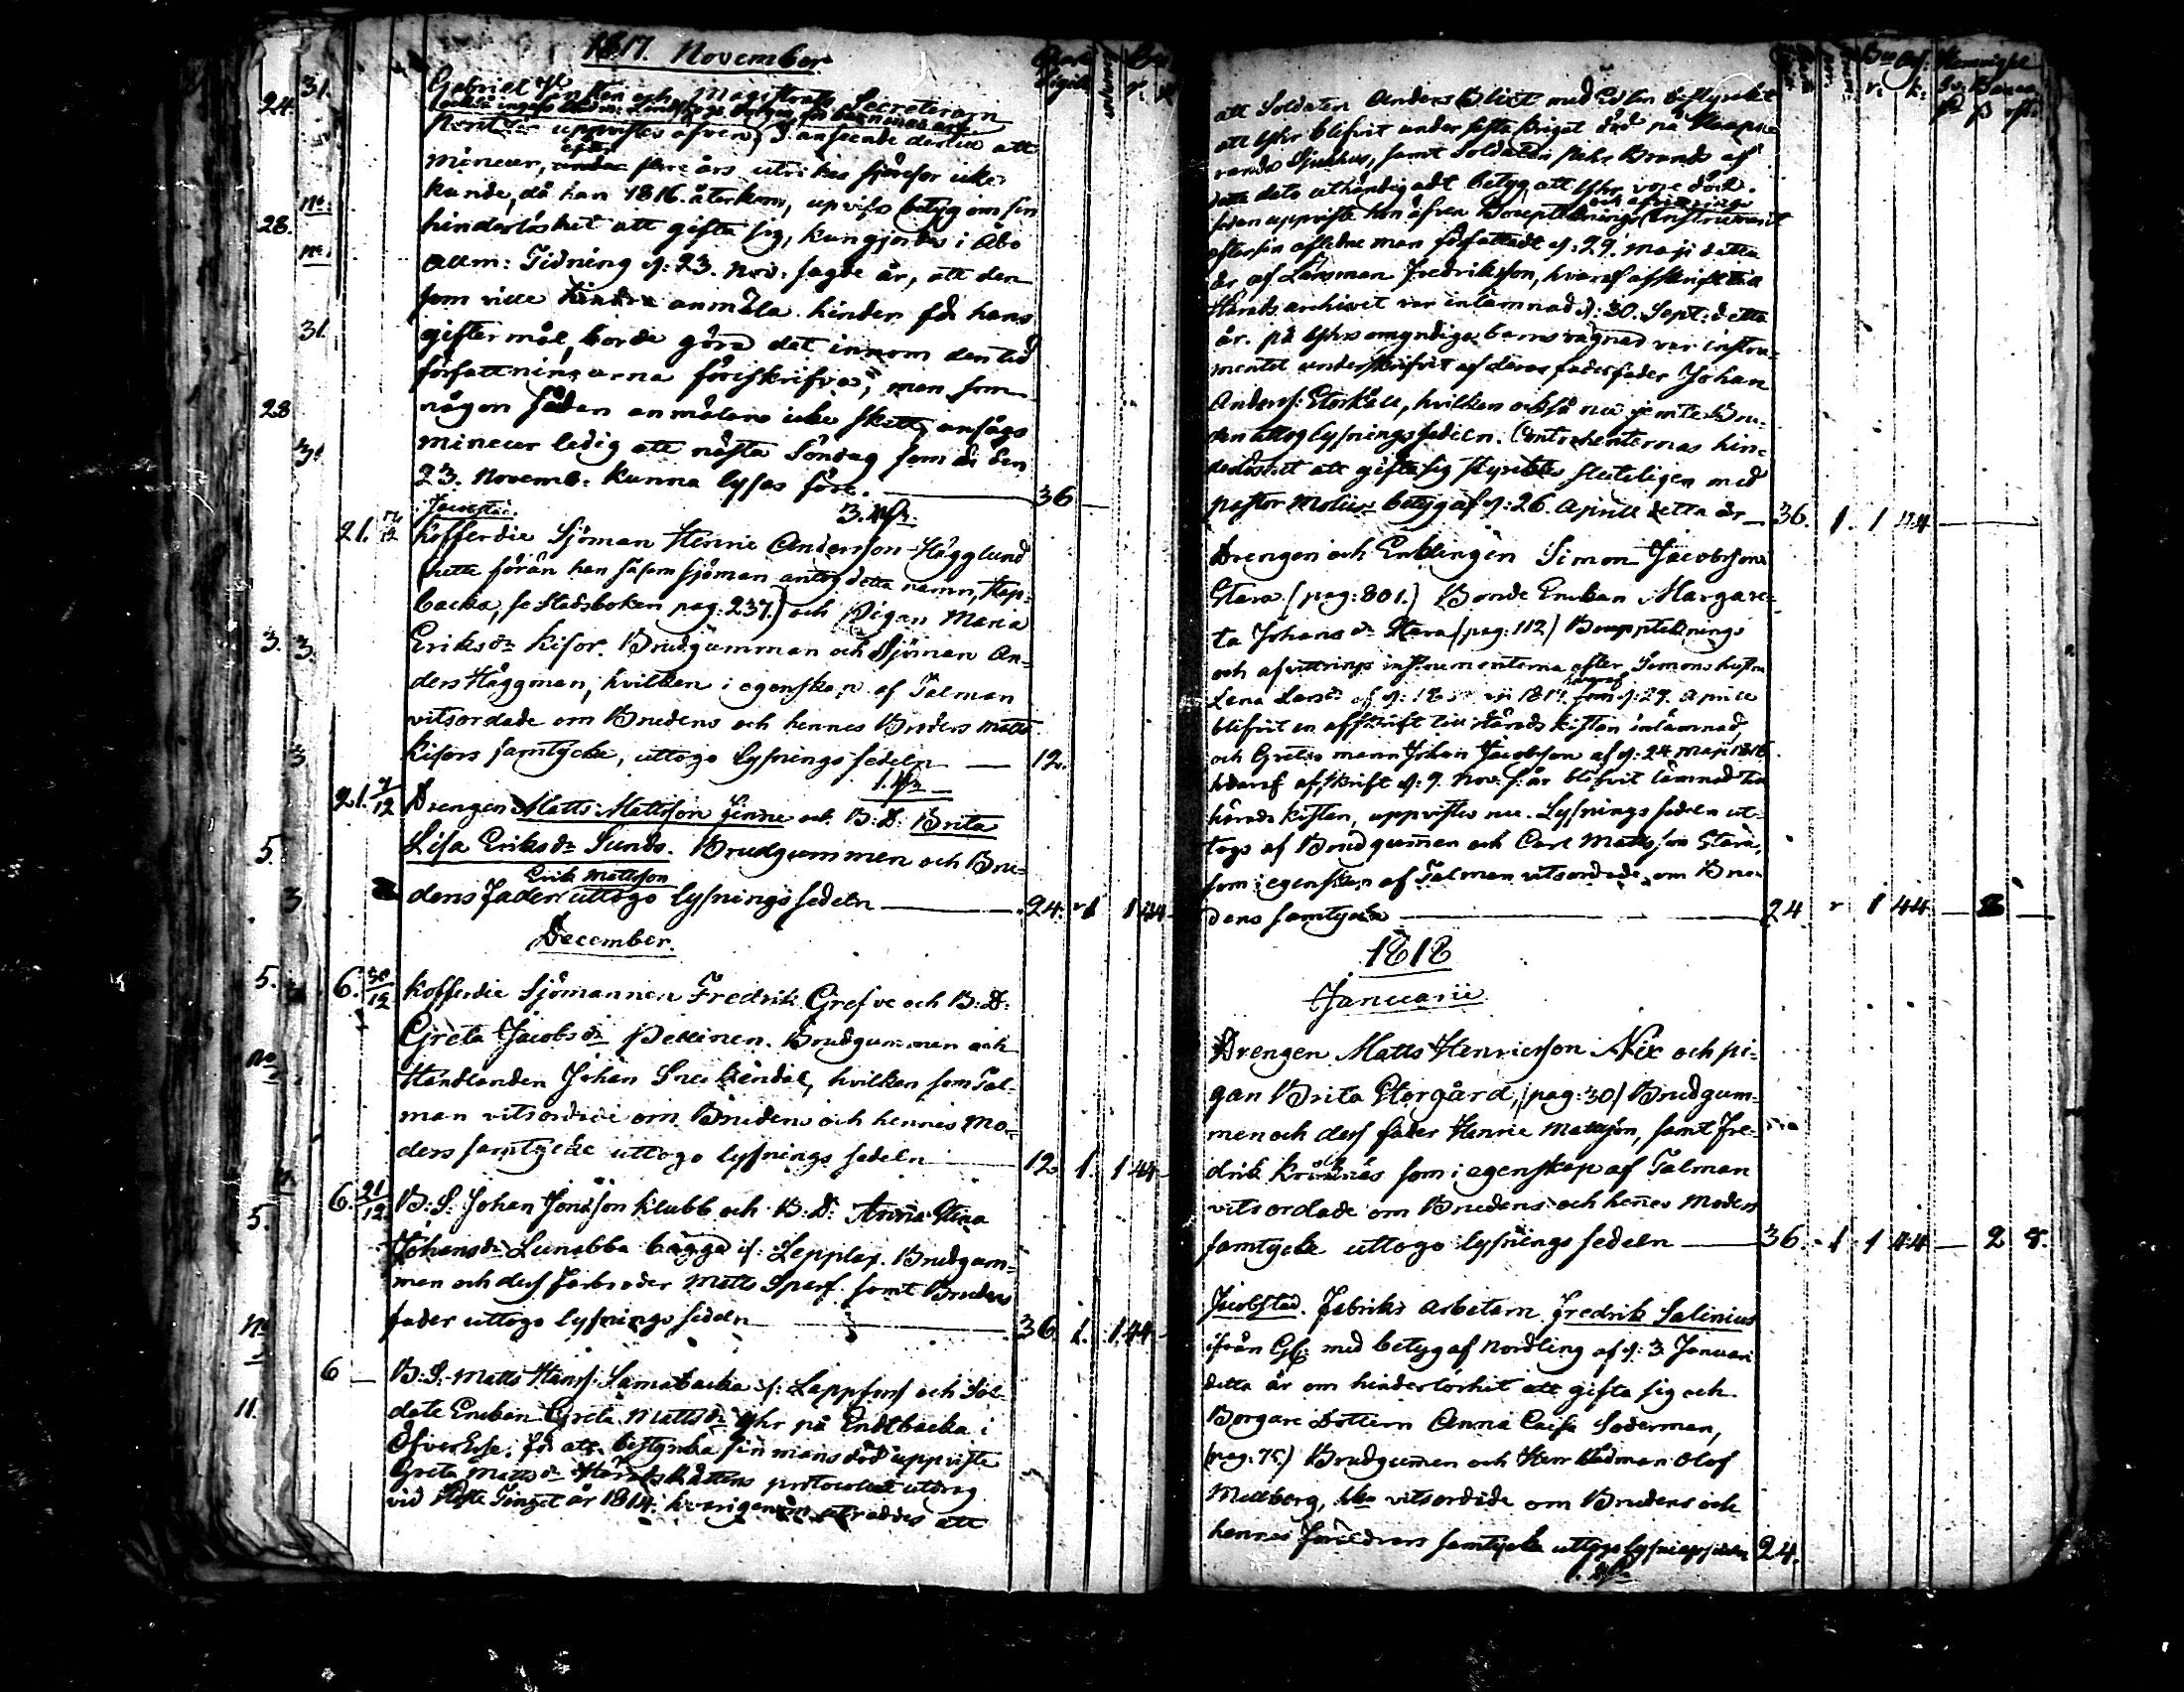 1817. November
Gabriel
Enkan och Magistrats Secreterarn
uppvistes äfven i anseende dertill att
mineur, efter flere års utrikes sjöresor icke
kunde, då han 1816. återkom, upvisa betyg om sin
hinderlöshet att gifta sig, kungjordes i Åbo
Allm: Tidning d: 23. Nov: sagde år, att den
som ville anmäla hinder för hans
giftermål, borde göra det innom den tid
författningarna föreskrifva, men som
någon sådan anmälan icke skett, ansågs
mineur ledig att nästa Söndag som är den
23. Novemb. kunna lysas före. 36
Jacobstad.
21. 7/12 Kofferdie Sjöman Henric Andersson Hägglund
(hette förän han såsom sjöman antog detta namn,
backa, se Stadsboken pag: 237.) och Pigan Maria
Eriks dr Kisor. Brudgumman och Sjöman An-
ders Häggman, hvilken i egenskap af Talman
vitsordade om Brudens och hennes Broders Matts
Kisors samtycke, uttogo lysningssedeln 12.
21. 7/12 Drengen Matts Mattsson Finne och B: D: Brita
Lisa Eriks dr Sunds. Brudgummen och Bru-
Erik Mattsson
dens fader uttogo lysnings sedeln 24. 1 1 44
December.
6. 30/12 Kofferdie Sjömannen Fredrik Grefve och B: D:
Greta Jacobs dr Pellinen. Brudgumman och
Handlanden Johan Sneckendal, hvilken som Tal-
man vitsordade om Brudens och hennes Mo-
ders samtycke uttogo lysnings sedeln 12. 1. 1 44
6. 21/12 B: S: Johan Jonsson Klubb och B: D: Anna Stina
Johans dr Lunabba bägge if: Lepplax. Brudgum-
men och dess farbroder Matts Sperf samt Brudens
fader uttogo lysnings sedeln 36. 1. 1. 44
6 B: S: Matts Hanss: Samabacka if: Lappfors och Sol-
date Enkan Greta Matts dr Yhr på Endtbacka i
Öfver Esse. för att bestyrka sin mans död uppviste
Greta Matts dr Häradsrättens protocolls utdrag
vid Höste Tinget år 1814. hvarigenom utreddes att
att Soldaten Anders Blixt med Ed bestyrkt
att Yhr blifvit under sista kriget död på
Sjukhus, samt Soldaten Pehr Brands af
dato uthändigadt betyg att Yhr vore död.
och afvittrings
sedan uppviste hon äfven Boupteknings Instrument
efter sin aflidne man författadt d: 29. Maji detta
år af Länsman Fredriksson, hvaraf afskrift till
Härads archivet var inlämnad d: 30. Sept: detta
år. på Yhrs omyndiga barns vägnar var instru-
mentet underskrifvit af deras faders fader Johan
Anderss: Storkåll, hvilken också nu jemte Bru-
den uttog lysningssedeln. Contrahenternas hin-
derlöshet att gifta sig styrktes sluteligen med
pastor Molins betyg af d: 26. April detta år 36. 1. 1 44
Drengen och Enklingen Simon Jacobsson
Stara. (pag: 801.) Bonde Enkan Margare-
ta Johans dr Stara (pag: 112) Boupteknings
och afvittrings instrumenterna efter Simons hustru
Lena Lars dr af d: 1817. hvaraf d: 29. April
blifvit en afskrift till Härads kistan inlämnad,
och Gretas mann Johan Jacobsson af d: 24 Maji 1816
hvaraf afskrift d: 9. Nov: s: år blifvit lämnad till
härads kistan, uppvistes nu. Lysnings sedeln ut-
togs af Brudgummen och Carl Mattsson Stara,
som i egenskap af Talman vitsordade om Bru-
dens samtycke 24 1 44
1818
Januarii
Drengen Matts Henricsson Nix och pi-
gan Brita Storgård, (pag: 30) Brudgum-
men och dess fader Henric Mattsson, samt Fre-
drik Kråknäs som i egenskap af Talman
vitsordade om Brudens och hennes Moders
samtycke uttogo lysnings sedeln 36. 1 1 44 2 8.
Jacobstad. Fabriks Arbetarn Fredrik Salinius
ifrån med betyg af Nordling af d: 3 Januari
detta år om hinderlöshet att gifta sig och
Borgare Dottern Anna Caisa Soderman,
(pag. 75.) Brudgummen och Herr Rådman Olof
Mellberg, vitsordade om Brudens och
hennes Föräldrars samtycke uttogo lysningssedeln 24.